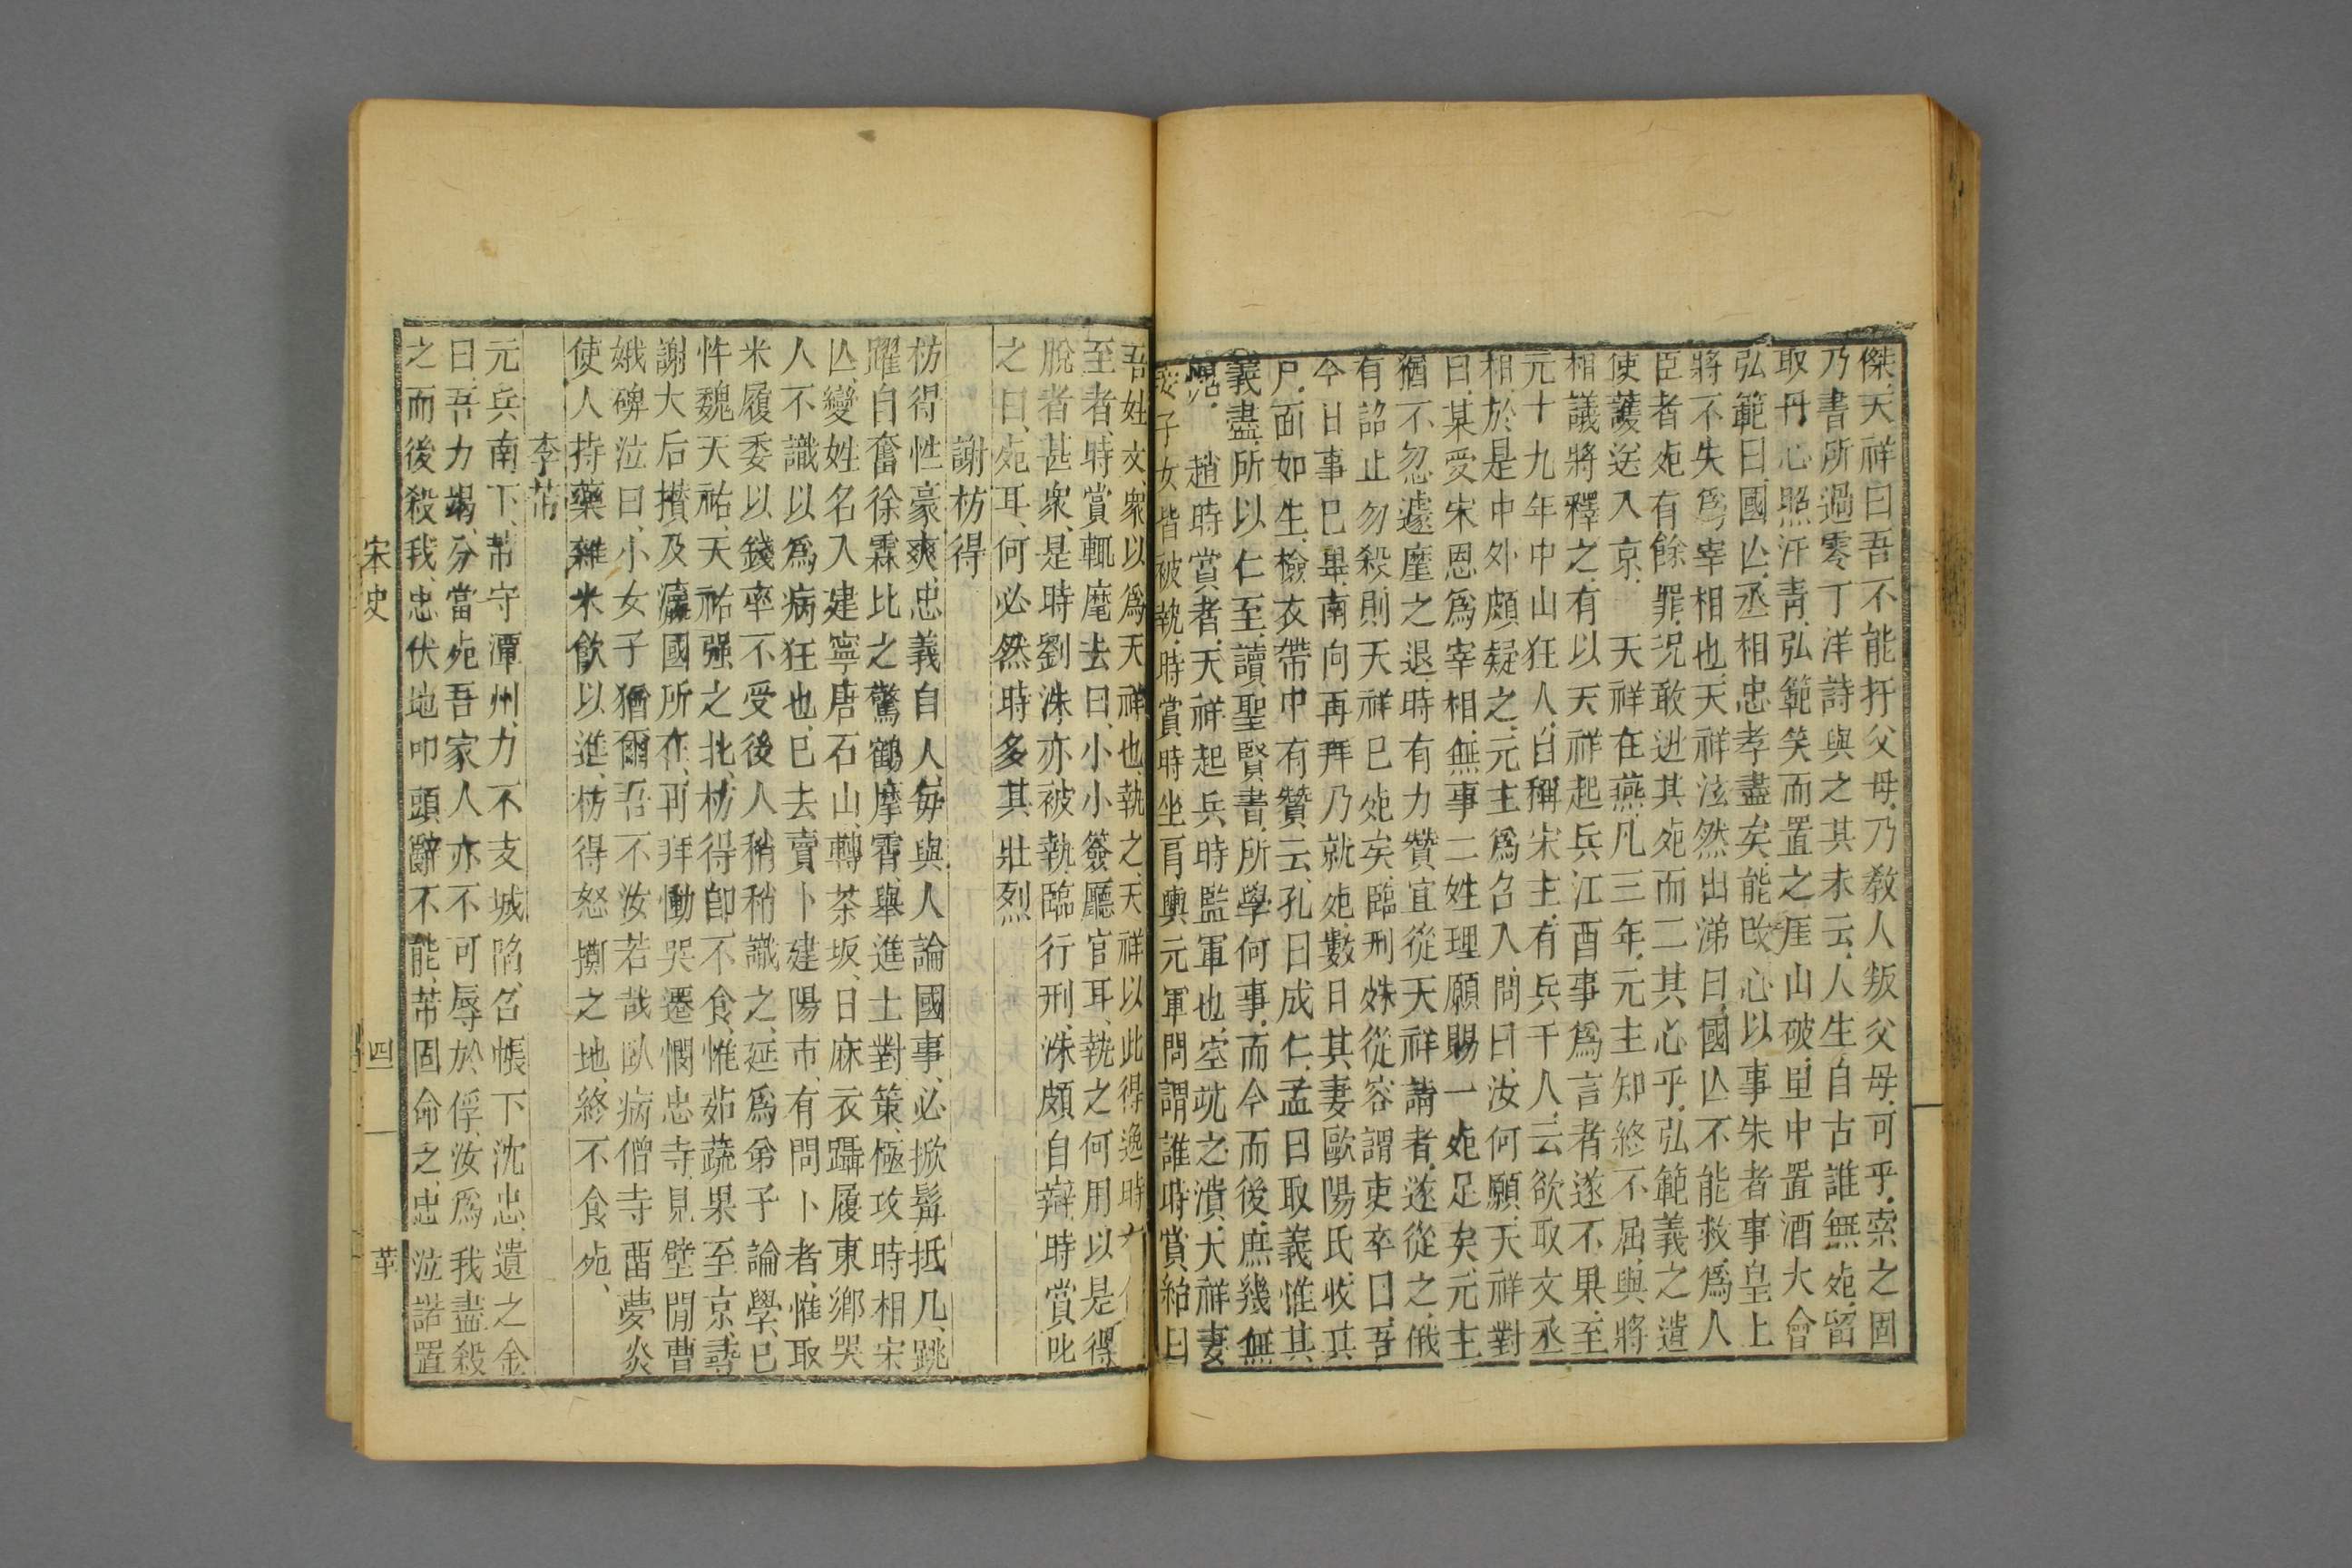 傑、天祥曰、吾不能扞父母、乃教人叛父母、可乎、索之固
乃書所過零丁洋詩與之、其末云、人生自古誰無死、留
取丹心照汗青、弘範笑而置之、厓山破、軍中置酒大會
弘範曰、國亾、丞相忠孝盡矣、能改心以事宋者事皇上
將不失爲宰相也、天祥泫然出涕曰、國亾不能救、爲人
臣者死有餘罪、况敢逃其死而二其心乎、弘範義之遣
使護送入京、　天祥在燕、凡三年、元主知終不屈、與將
相議將釋之、有以天祥起兵江西事爲言者、遂不果、至
元十九年中山狂人、自稱宋主、有兵千人、云欲取文丞
相、於是中外頗疑之、元主爲召入、問曰、汝何願、天祥對
曰、某受宋恩爲宰相、無事二姓理、願賜一死足矣、元主
猶不忍遽麾之退、時有力贊宜從天祥請者、遂從之、俄
有詔止勿殺則天祥已死矣、臨刑殊從容謂吏卒曰、吾
今日事已畢、南向再拜乃就死、數日其妻歐陽氏、收其
尸、面如生、檢衣帶中有贊云、孔曰成仁、孟曰取義、惟其
義盡、所以仁至、讀聖賢書、所學何事、而今而後、庶幾無
愧、　趙時賞者、天祥起兵時監軍也、空坑之潰、天祥妻
妾子女皆被執、時賞時坐肩輿、元軍問謂誰時賞紿曰
吾姓文、衆以爲天祥也、執之、天祥以此得逸時
至者、時賞輒麾去曰、小小簽廳官耳、執之何用、以是得
脫者甚衆、是時劉洙、亦被執、臨行刑、洙頗自辯、時賞叱
之曰、死耳、何必然、時多其壯烈
謝枋得
枋得性豪爽、忠義自人、每與人論國事、必掀髯抵几、跳
躍自奮、徐霖比之驚鶴摩霄、舉進士對策、極攻時相、宋
亾、變姓名入建寧、唐石山、轉茶坂、日麻衣躡履東鄉哭
人不識以爲病狂也、已去賣卜建陽市、有問卜者、惟取
米履、委以錢、率不受、後人稍稍識之、延爲弟子論學、已
忤魏天祐、天祐强之北、枋得卽不食、惟茹蔬果、至京、尋
謝大后攅及瀛國所在、再拜慟哭、遷憫忠寺、見壁閒曹
娥碑泣曰、小女子猶爾、吾不汝若哉、臥病僧寺、畱夢炎
使人持藥雜米飲以進、枋得怒擲之地、終不食死、
李芾
元兵南下、芾守潭州、力不支、城陷、召帳下沈忠、遺之金
曰、吾力竭、分當死、吾家人亦不可辱於俘、汝爲我盡殺
之而後殺我、忠伏地叩頭辭不能、芾固命之、忠泣諾置
宋史　四　革